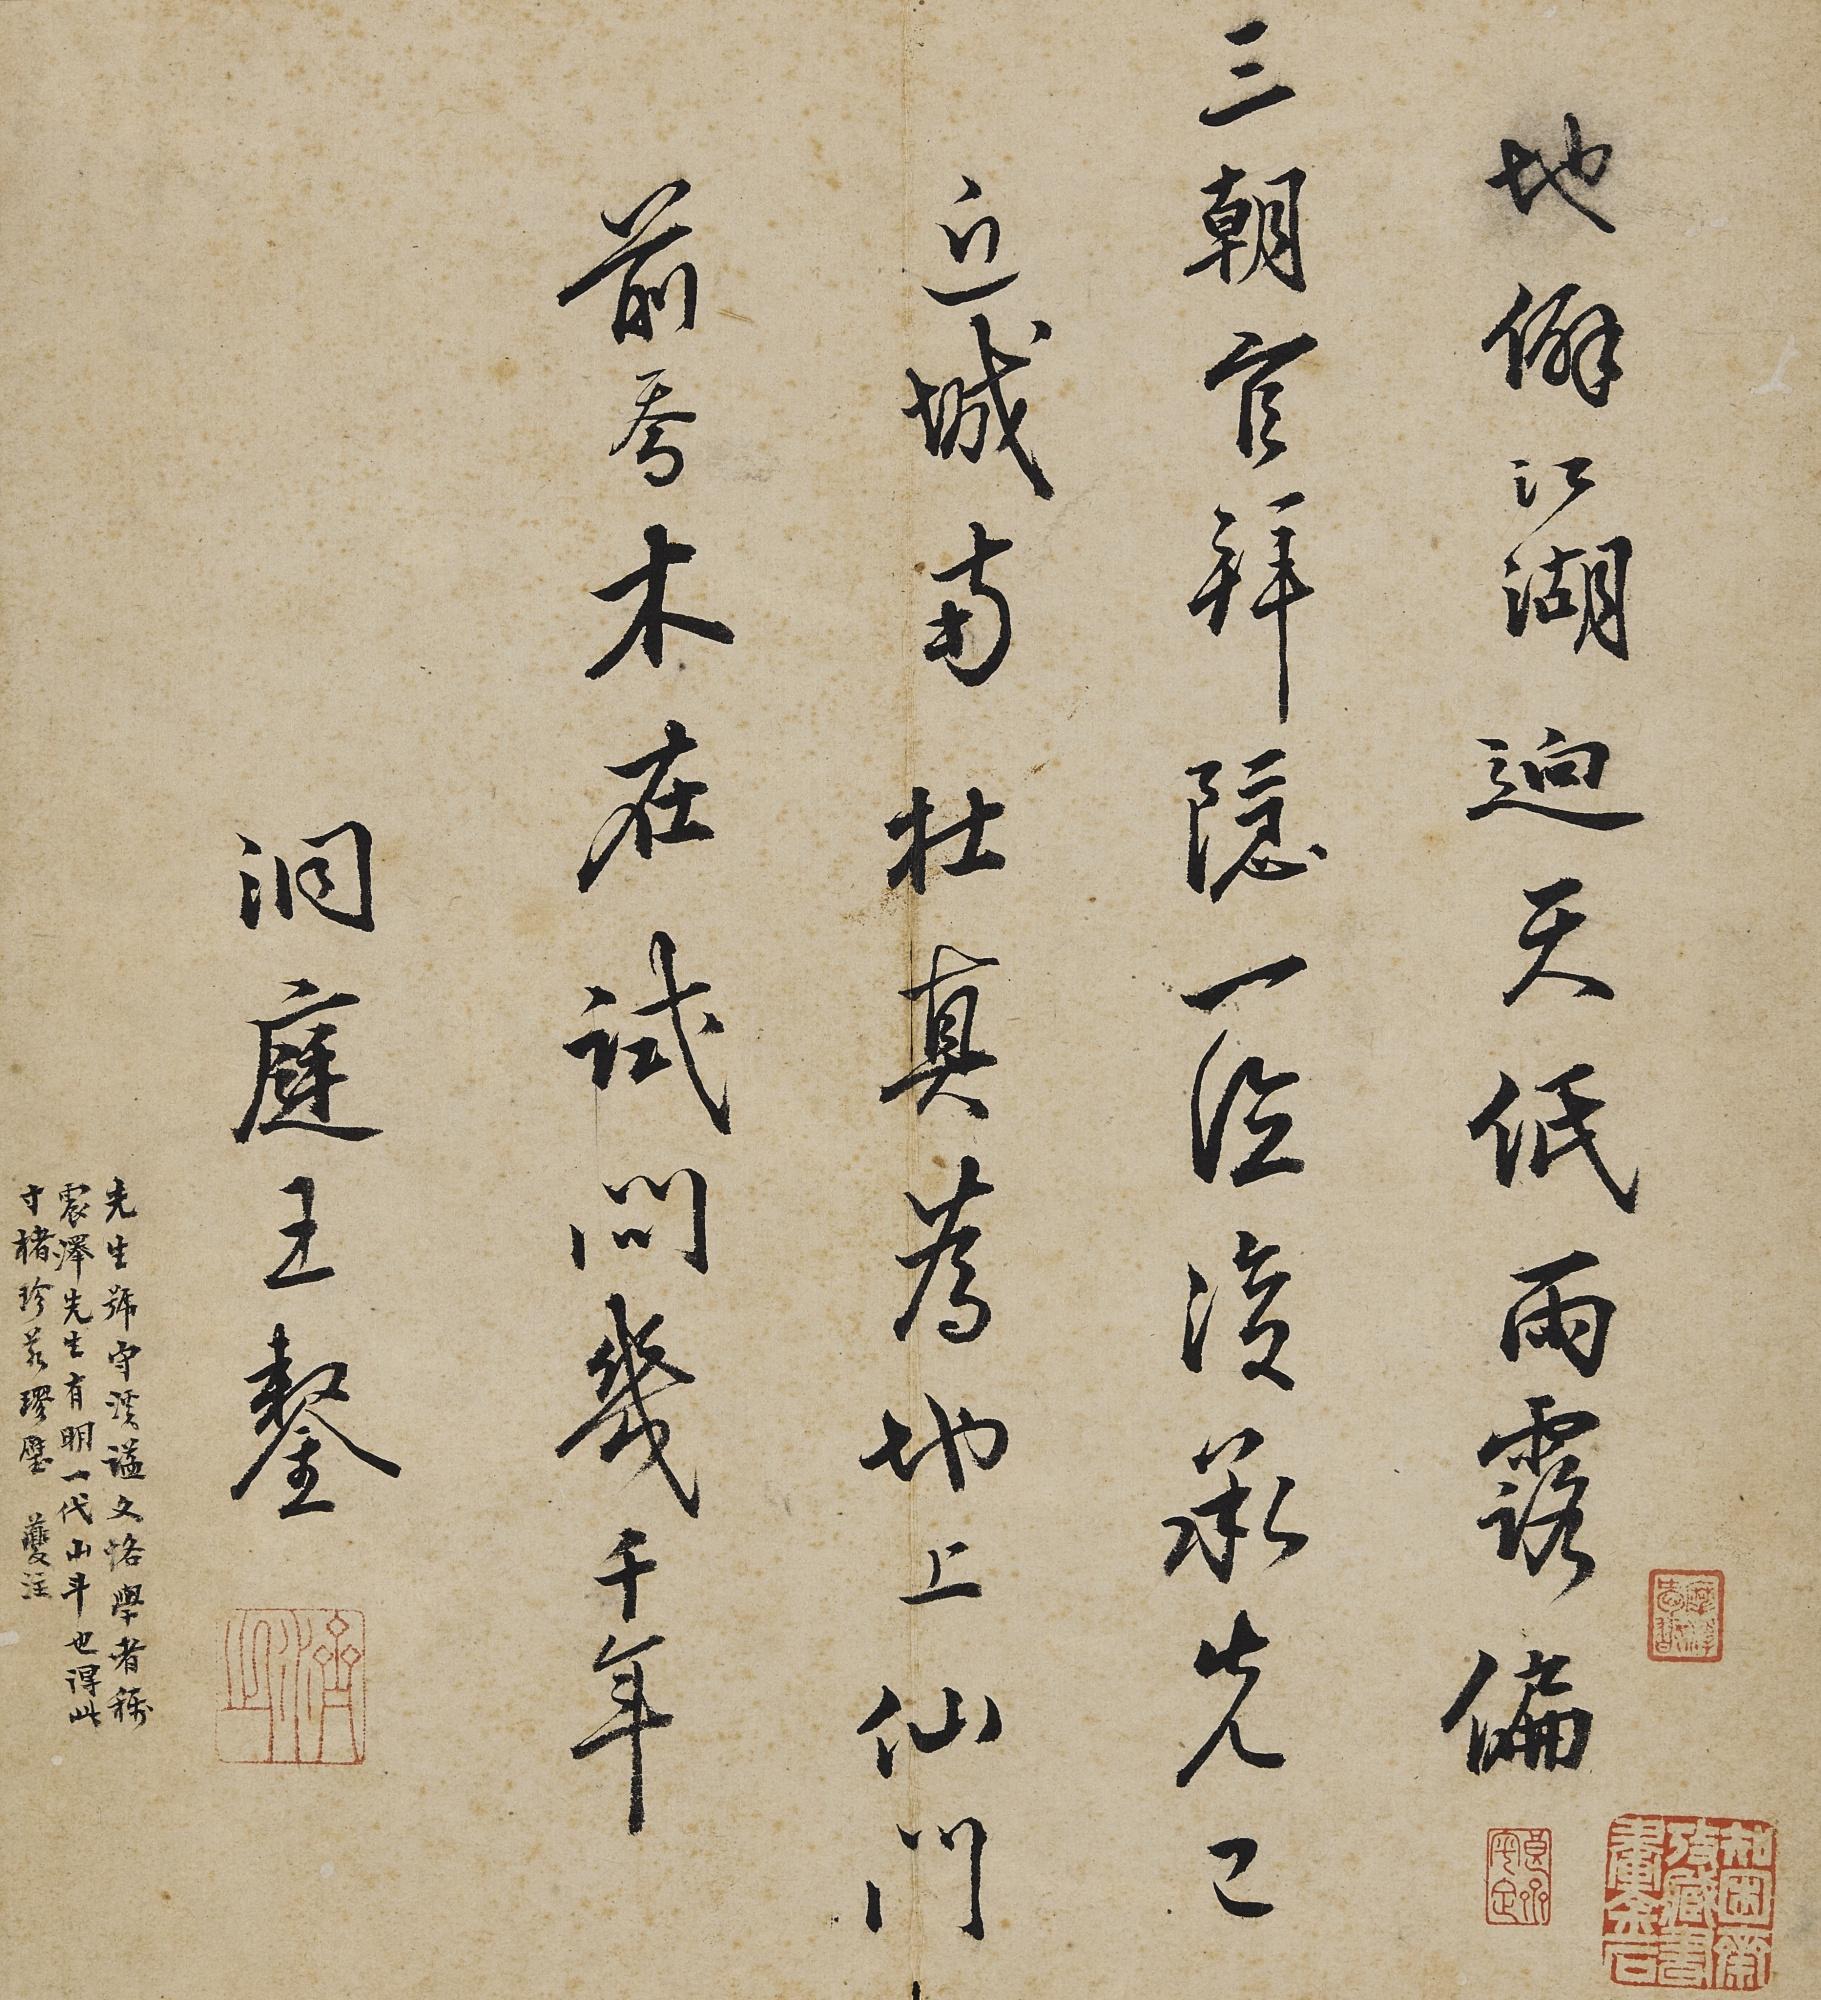 地僻江湖迥天低雨露偏
三朝官拜隱一徑復承先已
近城南杜真為地上仙門
前喬木在試問幾千年
洞庭王鏊
濟之
先生號守溪謚文恪學者稱
震澤先生有明一代山斗也得此
寸楮珍若璆璧 夔注